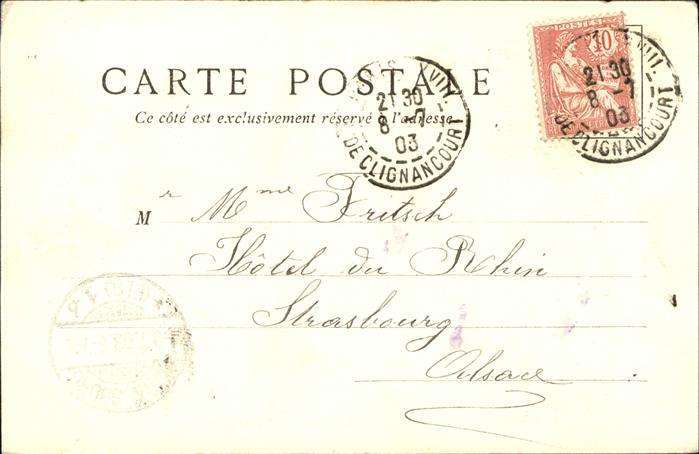 CARTE POSTALE
Ce côté est exclusivement réservé à l'adresse
POSTES
10
21 30
8 - 7
03
DE CLIGNANCOURT
21 30
8 - 7
03
DE CLIGNANCOURT
Mr Mme Fritsch
Hôtel du Rhin
Strasbourg
Alsace